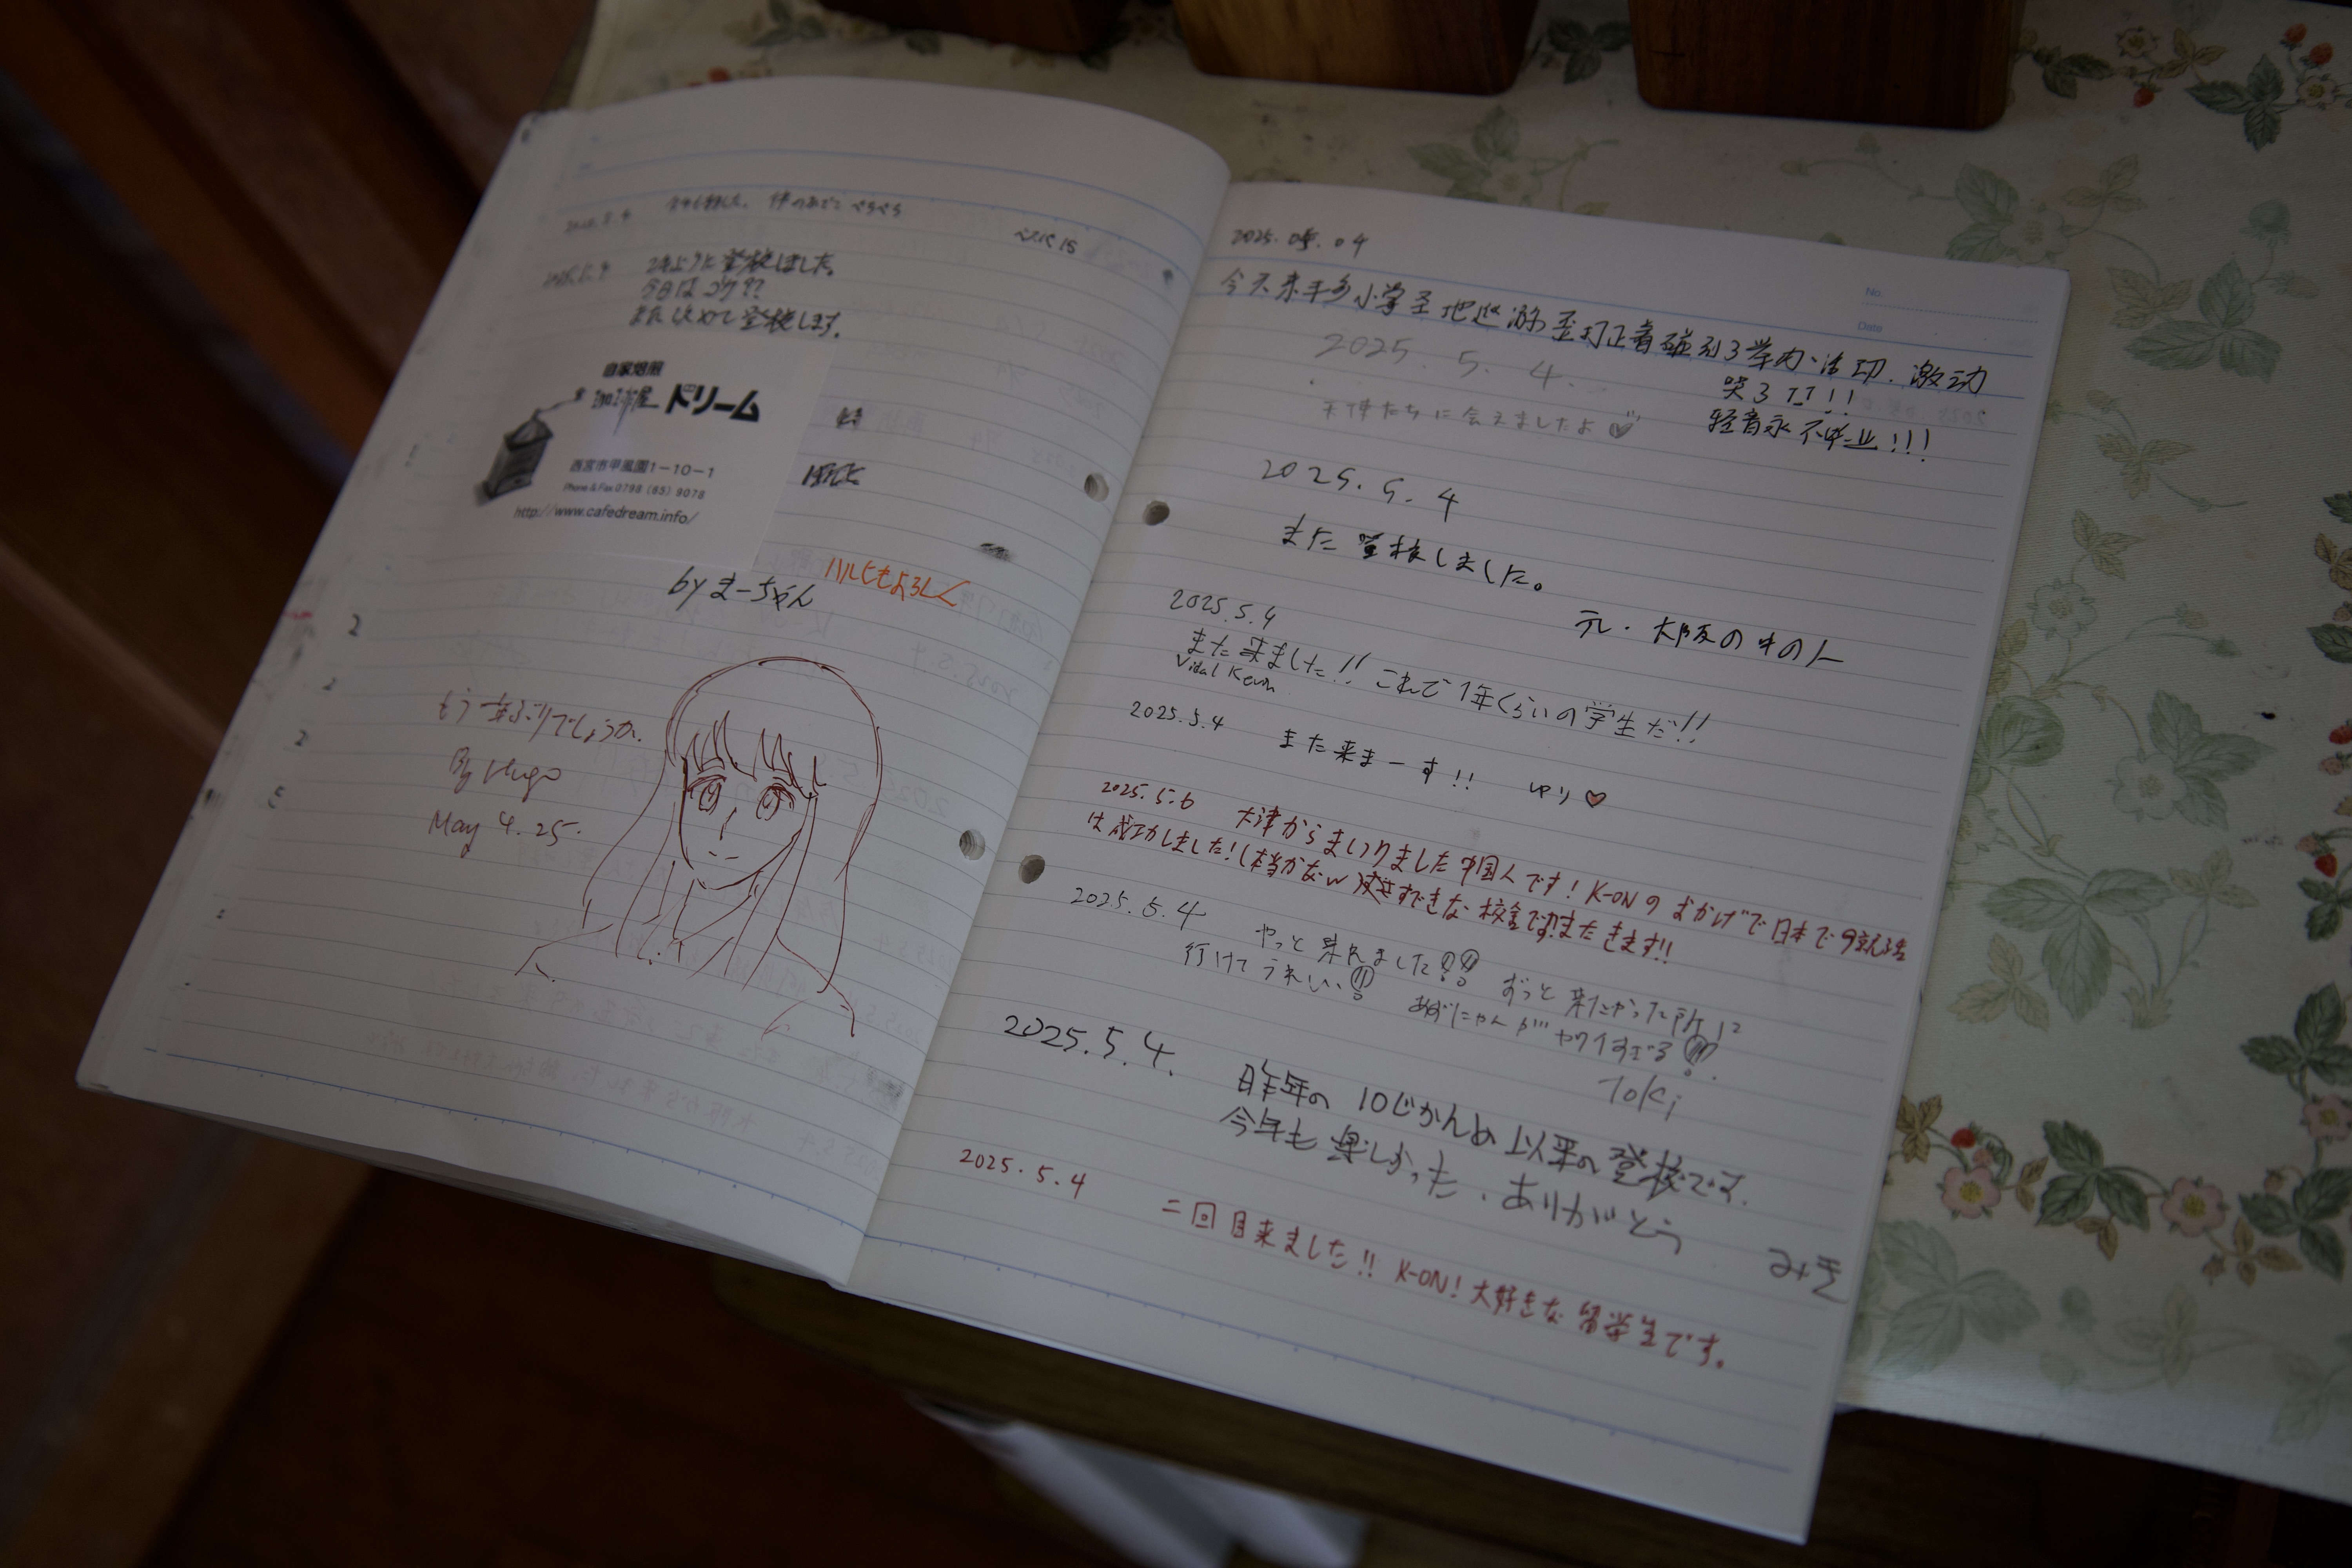 登校しました。
今日は
また 登校します。
自家焙煎
ドリーム
西宮市甲風園1-10-1
Phone & Fax 0798 (65) 9078
http://www.cafedream.info/
ハルヒもよろしく
by まーちゃん
もう一年ぶりでしょうか.
By Hugo
May 4. 25.
No.
Date
2025. 05. 04
今天来丰乡小学圣地巡游歪打正着碰到了学内活动. 激动
哭了TT!!
轻音永不毕业!!!
2025. 5. 4.
天使たちに会えましたよ♡
2025. 5. 4
また登校しました。
元・大阪の中の人
2025.5.4
また来ました!! これで1年くらいの学生だ!!
Vidal Kevin
2025.5.4 また来まーす!! ゆり♡
2025.5.6 大津からまいりました中国人です! K-ONのおかげで日本で就活
は成功しました!(本当かなw すてきな校舎です!またきます!!
2025.5.4 やっと来れました!! ずっと来たかった所に
行けてうれしい!!
あずにゃんがカワイすぎる!!
Toki
2025.5.4. 昨年の10じかんめ以来の登校です.
今年も楽しかった. ありがとう
みき
2025.5.4 二回目来ました!! K-ON!大好きな留学生です。